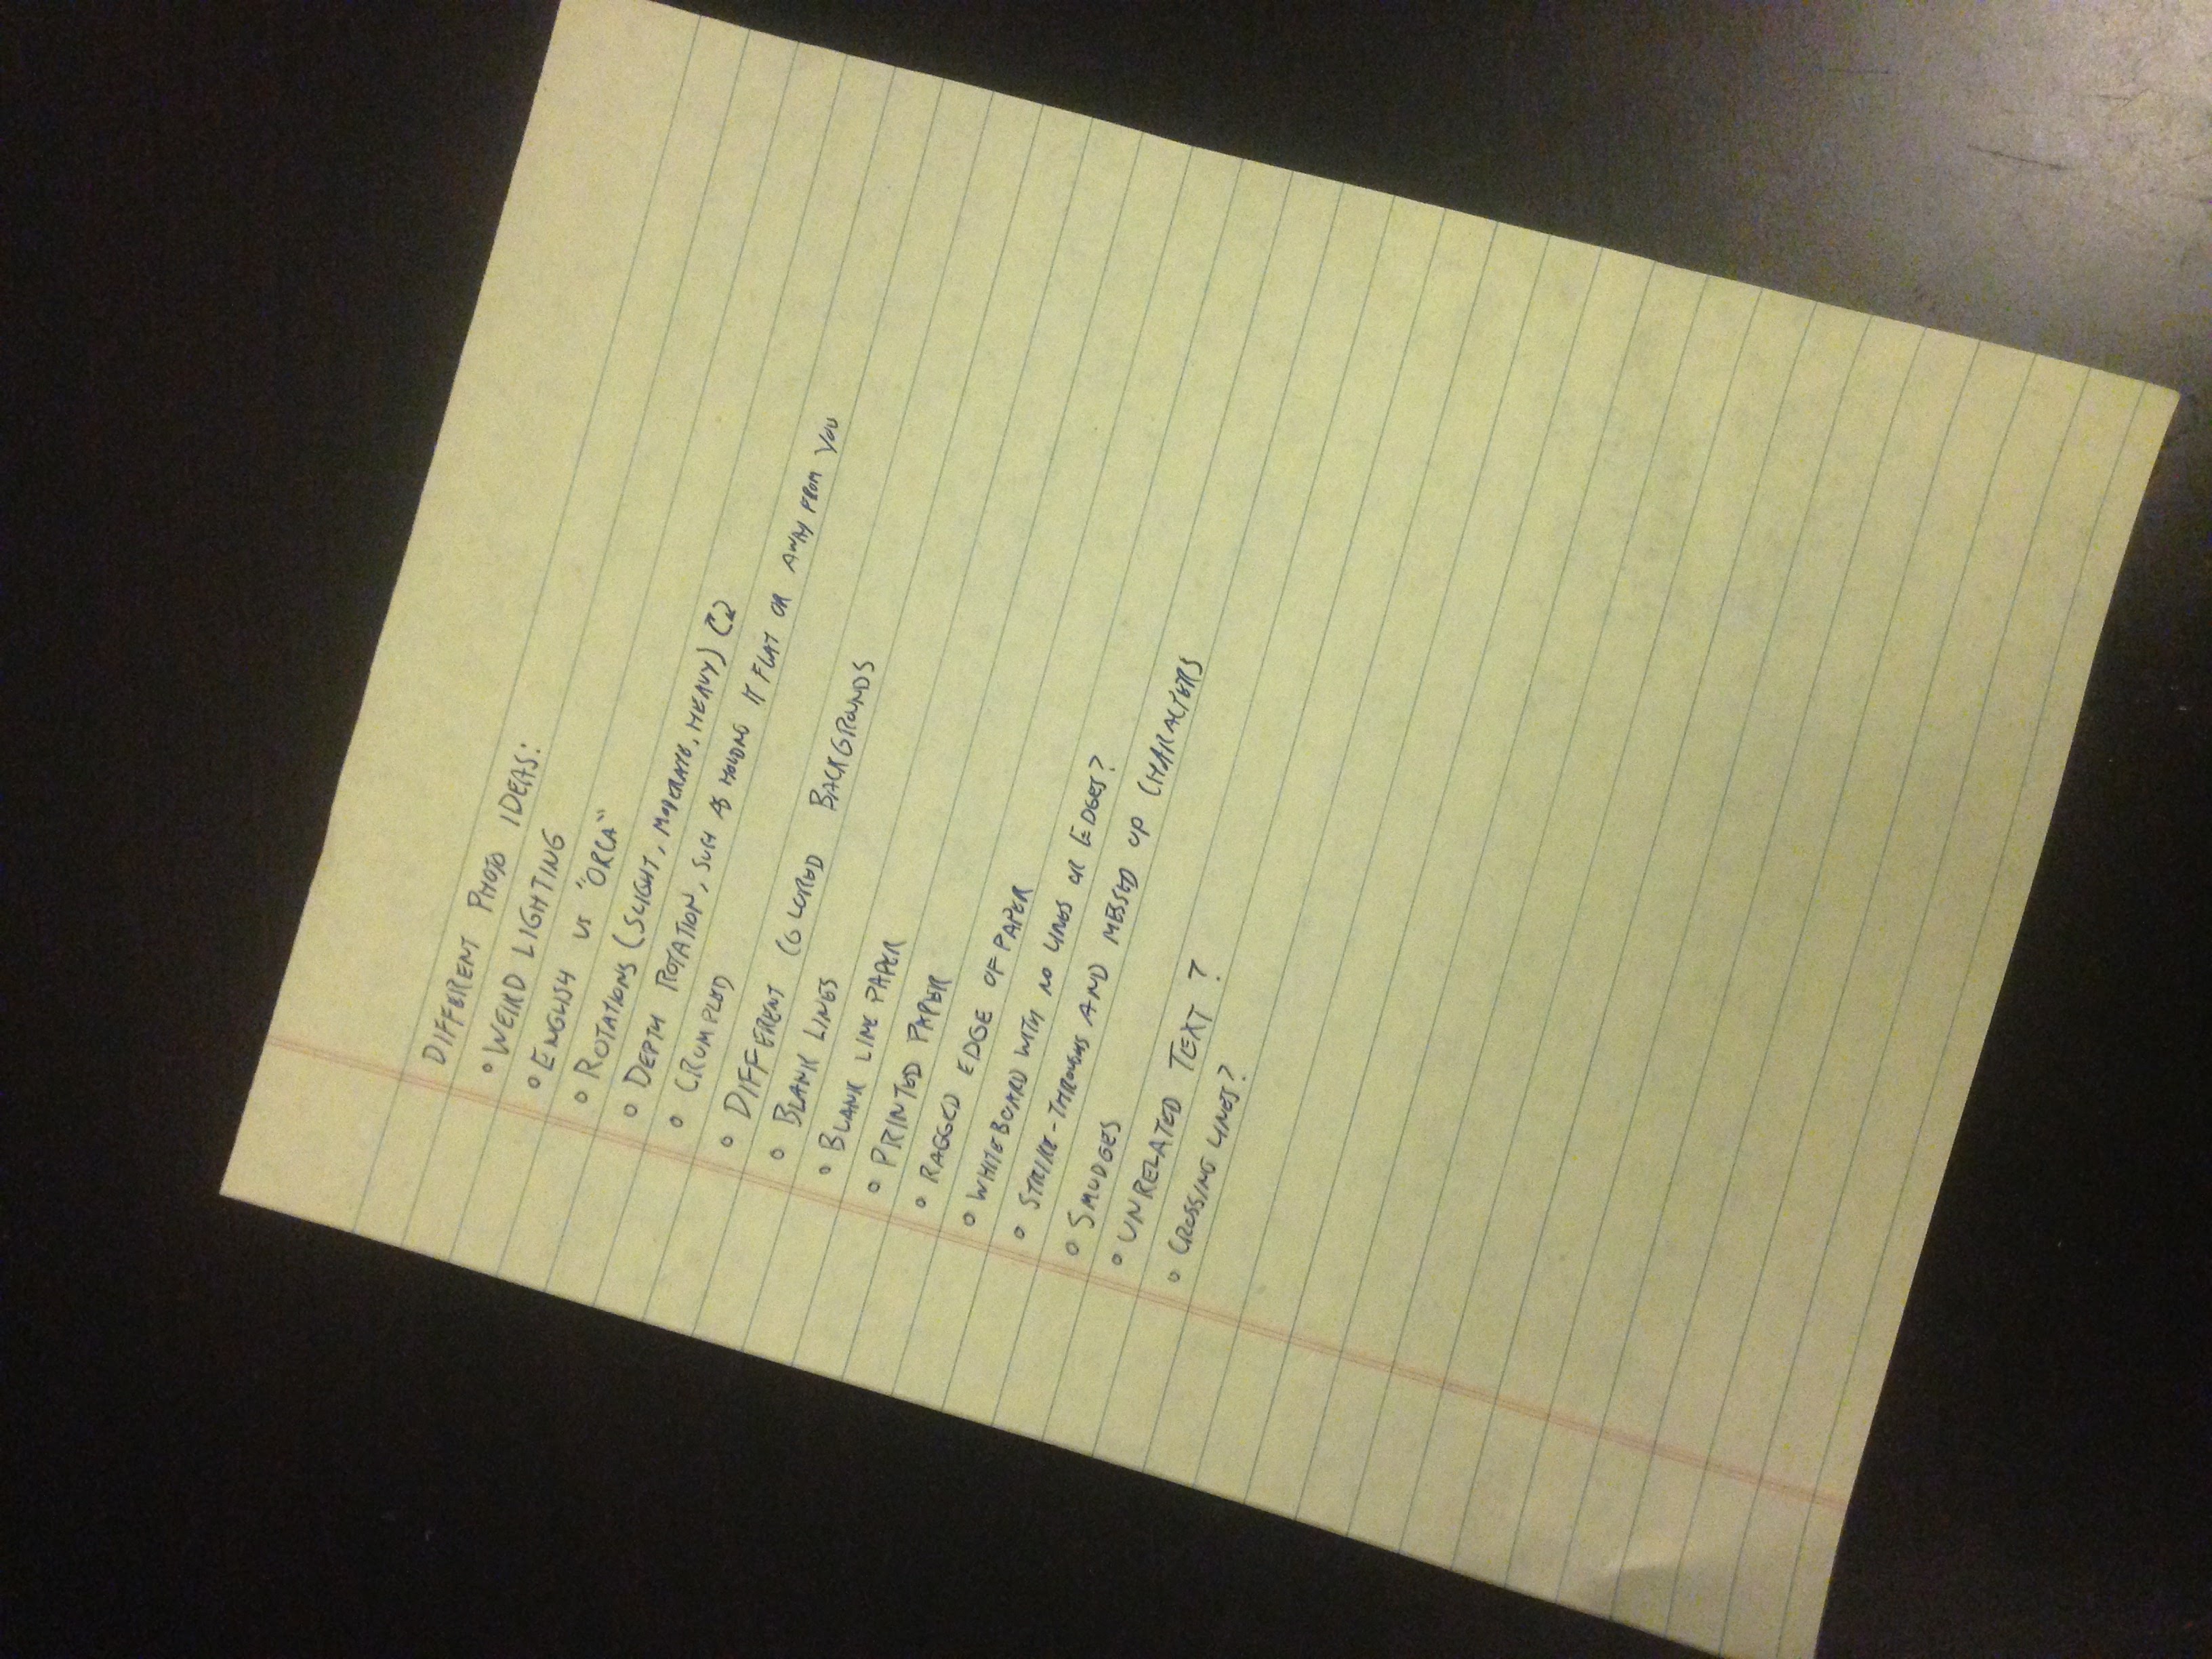 DIFFERENT PHOTO IDEAS:
• WEIRD LIGHTING
• ENGLISH VS "ORCA"
• ROTATIONS (SLIGHT, MODERATE, HEAVY)
• DEPTH ROTATION, SUCH AS HOLDING IT FLAT OR AWAY FROM YOU
• CRUMPLED
• DIFFERENT COLORED BACKGROUNDS
• BLANK LINES
• BLANK LINE PAPER
• PRINTED PAPER
• RAGGED EDGE OF PAPER
• WHITEBOARD WITH NO LINES OR EDGES?
• STRIKE-THROUGHS AND MESSED UP CHARACTERS
• SMUDGES
• UNRELATED TEXT?
• CROSSING LINES?